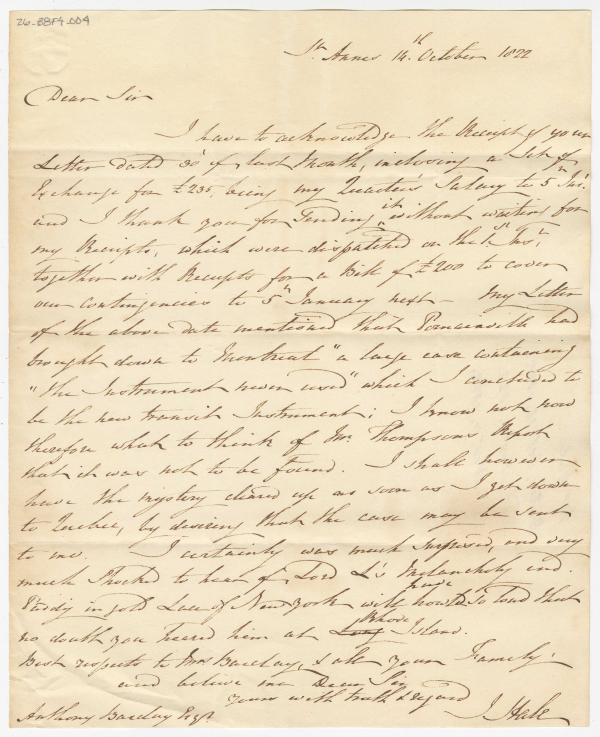 26-88F4-004
St Annes 14th October 1822
Dear Sir
I have to acknowledge the Receipt of your
Letter dated 30 of last Month, inclosing a Set of
Exchange for £235, being my Quarter's Salary to 5th Inst
and I thank you for sending it without waiting for
my Receipts, which were dispatched on the 1st Inst
together with Receipts for a Bill of £200 to cover
our contingencies to 5th January next - My Letter
of the above date mentioned that Pomainville had
brought down to Montreal "a large case containing
"the Instrument never used" which I concluded to
be the new transit Instrument; I know not now
therefore what to think of Mr Thompsons Report
that it was not to be found. I shall however
have the mystery cleared up as soon as I get down
to Quebec, by desiring that the case may be sent
to me. I certainly was much surprised, and very
much Shocked to hear of Lord L's Melancholy end.
in gold Lace of New York will have so loud that
no doubt you heard him at Long Rhode Island.
Best respects to Mrs Barclay, & all your Family
and believe me Dear Sir
yours with truth & regard
J Hale
Anthony Barclay Esqr